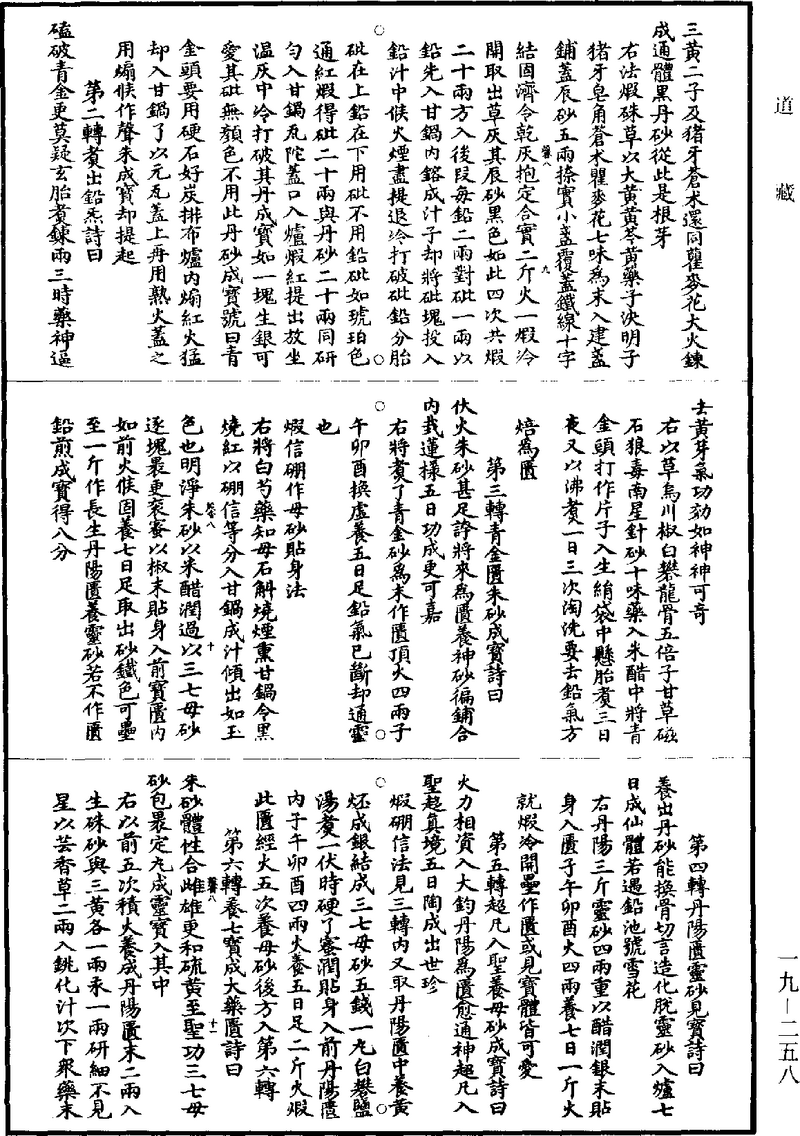 道藏
三黃二子及猪牙蒼朮還同瞿麥花大火鍊
成通體黑丹砂從此是根芽
右法煅硃草以大黃黃芩黃藥子決明子
猪牙皂角蒼朮瞿麥花七味為末入建盞
鋪蓋辰砂五兩捺實小盞覆蓋鐵線十字
結固濟令乾灰抱定合實二斤火一煅冷
開取出草灰其辰砂黑色如此四次共煅
二十兩方入後段每鉛二兩對砒一兩以
鉛先入甘鍋內鎔成汁子却將砒塊投入
鉛汁中候火煙盡提退冷打破砒鉛分胎
砒在上鉛在下用砒不用鉛砒如琥珀色
通紅煅得砒二十兩與丹砂二十兩同研
勻入甘鍋瓦陀蓋口入爐煅紅提出放坐
温灰中冷打破其丹成寶如一塊生銀可
愛其砒無顏色不用此丹砂成寶號曰青
金頭要用硬石好炭排布爐內煽紅火猛
却入甘鍋了以元瓦蓋上再用熟火蓋之
用煽候作聲朱成寶却提起
第二轉煑出鉛炁詩曰
磕破青金更莫疑玄胎煑鍊兩三時藥神逼
去黃芽氣功効如神神可奇
右以草烏川椒白礬龍骨五倍子甘草磁
石狼毒南星針砂十味藥入米醋中將青
金頭打作片子入生絹袋中懸胎煑三日
夜又以沸煑一日三次淘洗要去鉛氣方
焙為匱
第三轉青金匱朱砂成寶詩曰
伏火朱砂甚足誇將來為匱養神砂徧鋪合
內栽蓮樣五日功成更可嘉
右將煑了青金砂為末作匱頂火四兩子
午卯酉換虛養五日足鉛氣已斷却通靈
也
煅信硼作母砂貼身法
右將白芍藥知母石斛燒煙熏甘鍋令黑
燒紅以硼信等分入甘鍋成汁傾出如玉
色也明淨朱砂以米醋潤過以三七母砂
逐塊最更裹蜜以椒末貼身入前寶匱內
如前火候固養七日足取出砂鐵色可壘
至一斤作長生丹陽匱養靈砂若不作匱
鉛煎成寶得八分
第四轉丹陽匱靈砂見寶詩曰
養出丹砂能換骨切言造化脫靈砂入爐七
日成仙體若遇鉛池號雪花
右丹陽三斤靈砂四兩重以醋潤銀末貼
身入匱子午卯酉火四兩養七日一斤火
就煅冷開壘作匱或見寶體皆可愛
第五轉超凡入聖養母砂成寶詩曰
火力相資入大鈞丹陽為匱愈通神超凡入
聖超真境五日陶成出世珍
煅硼信法見三轉內又取丹陽匱中養黃
坯成銀結成三七母砂五錢一丸白礬鹽
湯煑一伏時硬了蜜潤貼身入前丹陽匱
內子午卯酉四兩火養五日足二斤火煅
此匱經火五次養母砂後方入第六轉
第六轉養七寶成大藥匱詩曰
朱砂體性合雌雄更和硫黃至聖功三七母
砂包裹定丸成靈寶入其中
右以前五次積火養成丹陽匱末二兩入
生硃砂與三黃各一兩汞一兩研細不見
星以芸香草二兩入銚化汁次下衆藥末
一九—二五八